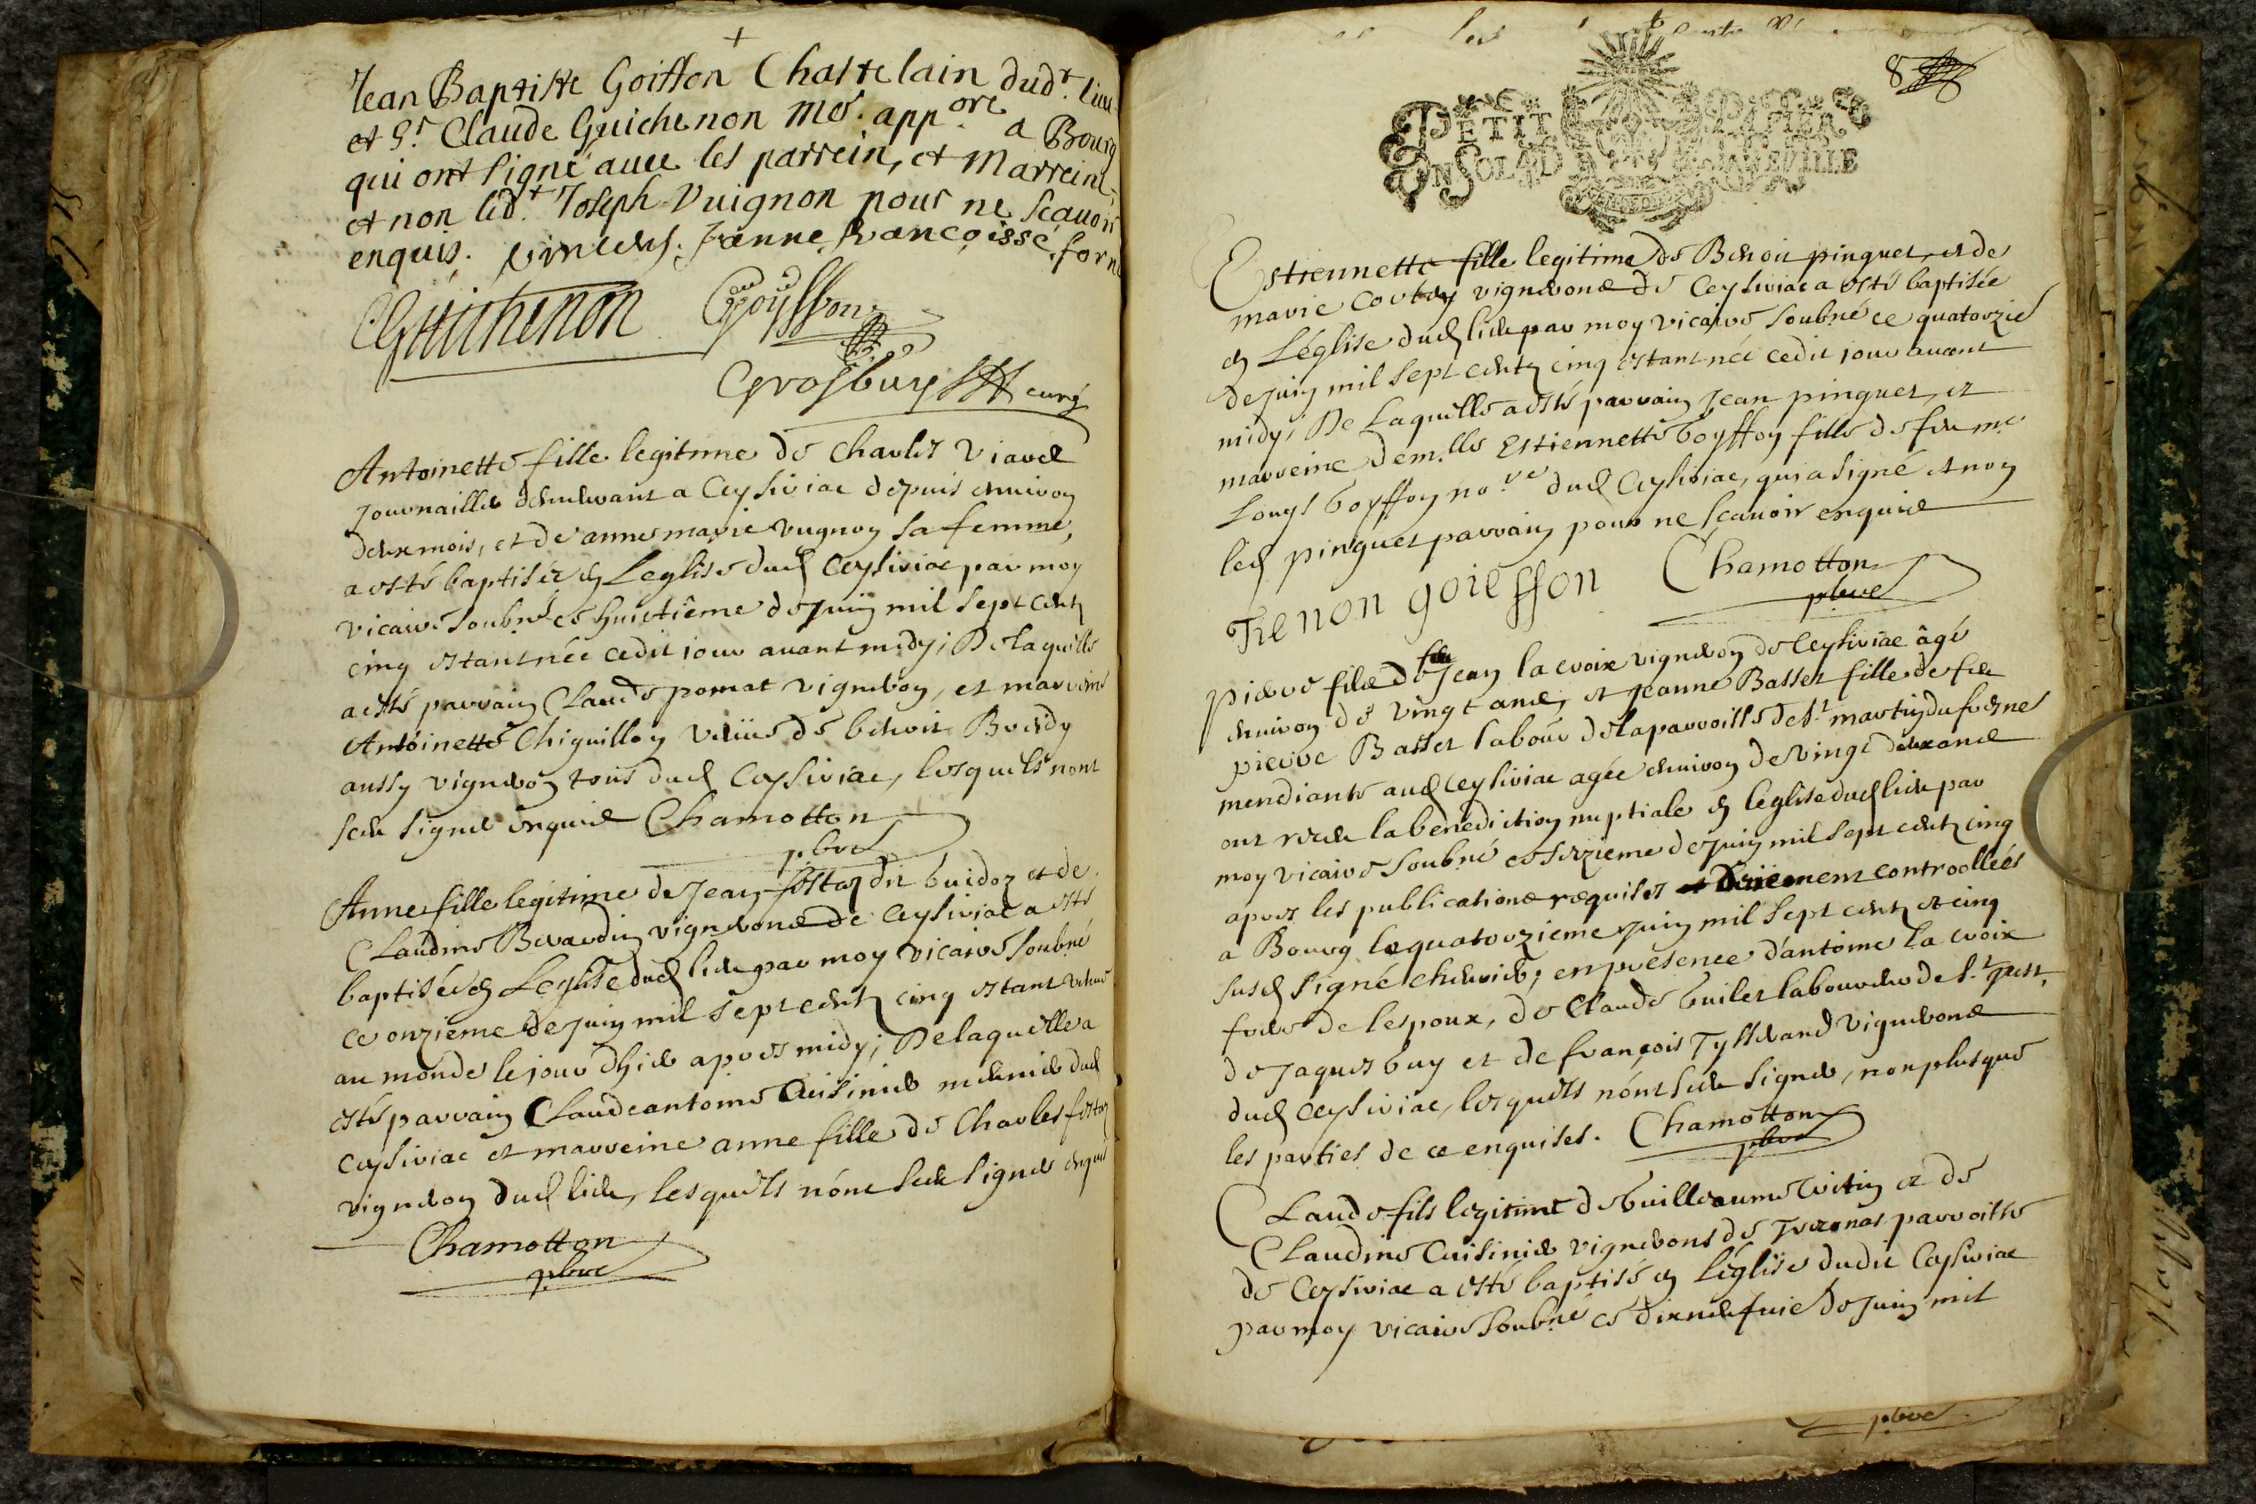 Jean Baptiste Goiffon Chastelain dud.t lieu
et S.r Claude Guichenon me. app.ore a Bourg
qui ont signé auec les parrein, et Marreine
et non led.t Joseph Vuignon pour ne scauoir
enquis. Janne francoisse forn
CGuichenon Goyffon
Grosbuy curé
Antoinette fille legitime de Charles Viard
Journaillier demeurant a Ceysiriac depuis enuiron
deux mois, et de anne marie vugnon sa femme,
a esté baptisée en Leglise dud Ceysiriac par moy
vicaire soubné ce huictième de Juin mil sept cents
cinq estant née cedit iour auant midy; De laquelle
a esté parrain Claude pomat vigneron, et marreine
Antoinette Chiquillon veüue de benoit Brady
aussy vigneron tous dud Ceysiriac, lesquels nont
sceu signer enquis Chamotton
pbre
Anne fille legitime de Jean festaz dit buidoz et de
Claudine Berardin vignerons de Ceysiriac a esté
baptisée en Leglise dud lieu par moy vicaire soubné
ce onzieme de Juin mil sept cents cinq estant venue
au monde le jour dhier apres midy; De laquelle a
esté parrain Claude antoine Cuisinier meunier dud
Ceysiriac et marreine anne fille de Charles festaz
vigneron dud lieu, lesquels nónt sceu signer enquis
Chamotton
pbre
8
PETIT PAPIER
UN SOL LA FEVILLE
Estiennette fille legitime de Benoit pinguet, et de
marie vignerons de Ceysiriac a esté baptisée
en Léglise dud lieu par moy vicaire soubné ce quatorzie
de Juin mil sept cents cinq estant née cedit iour auant
midy; De Laquelle a esté parrain Jean pinguet, et
marreine dem.lle Estiennette Goyffon fille de feu me
Louys Goyffon no.re dud Ceysiriac, qui a signé et non
led pinguet parrain pour ne sçauoir enquis
Tienon goiesson Chamotton
pbre
pierre fils de feu Jean la croix vigneron de Ceysiriac âgé
enuiron de vingt ans, et Jeanne Basset fille de feu
pierre Basset labour de la parroisse de st martin du fresnes
mendiante aud Ceysiriac agée enuiron de vingt deux ans
ont receu la benediction nuptiale en leglise dud lieu par
moy vicaire soubné ce seizieme de Juin mil sept cents cinq
apres les publications requises et Düement controollées
a Bourg le quatorzieme Juin mil sept cents et cinq
susd signé cheurier, en présence d'antoine la croix
frere de lespoux, de Claude builet laboureur de s.t Just,
de Jaques buy et de françois Tysserand vignerons
dud Ceysiriac, lesquels nónt sceu signer, non plus que
les parties de ce enquises. Chamotton
pbre
Claude fils legitime de Guilleaume vitin et de
Claudine Cuisinier vignerons de parroisse
de Ceysiriac a esté baptisé en Léglise dudit Ceysiriac
par moy vicaire soubné ce dixneufuie de Juin mil
pbre